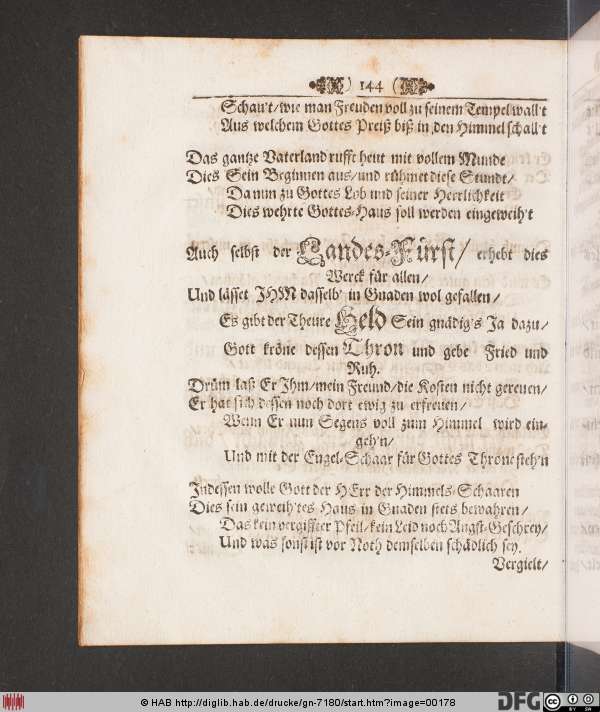 ) 144 (
Schau't/wie man Freuden voll zu seinem Tempel wall't
Aus welchem Gottes Preiß biß in den Himmel schall't
Das gantze Vaterland rufft heut mit vollem Munde
Dies Sein Beginnen aus/und rühmet diese Stundt/
Da nun zu Gottes Lob und seiner Herrlichkeit
Dies wehrte Gottes-Haus soll werden eingeweih't
Auch selbst der Landes-Fürst/ erhebt dies
Werck für allen/
Und lässet JHM dasselb' in Gnaden wol gefallen/
Es gibt der Theure Held Sein gnädig's Ja dazu/
Gott kröne dessen Thron und gebe Fried und
Ruh.
Drüm laß Er Ihm/mein Freund/die Kosten nicht gereuen/
Er hat sich dessen noch dort ewig zu erfreuen/
Wenn Er nun Segens voll zum Himmel wird ein-
geh'n/
Und mit der Engel-Schaar für Gottes Throne steh'n
Indessen wolle Gott der HErr der Himmels-Schaaren
Dies sein geweih'tes Haus in Gnaden stets bewahren/
Das kein vergiffter Pfeil/kein Leid noch Angst-Geschrey/
Und was sonst ist vor Noth demselben schädlich sey.
Vergielt/
© HAB http://diglib.hab.de/drucke/gn-7180/start.htm?image=00178
DFG
CC BY SA